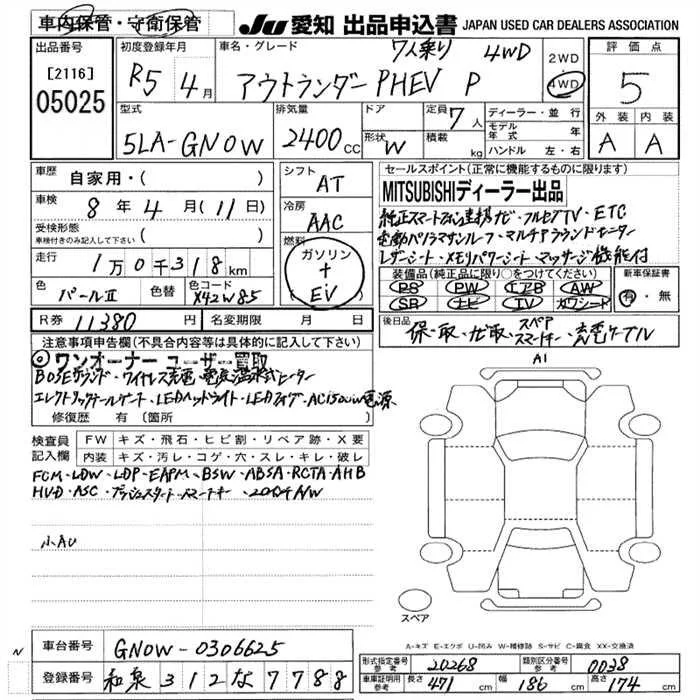 車内保管・守衛保管
JU 愛知 出品申込書 JAPAN USED CAR DEALERS ASSOCIATION
出品番号
[2116]
05025
初度登録年月
R5 4月
車名・グレード
7人乗り 4WD
アウトランダーPHEV P
2WD
4WD
評価点
5
外装 内装
A A
型式
5LA-GN0W
排気量
2400cc
ドア
形状 W
定員 7人
積載 kg
ディーラー・並行
モデル年式 年
ハンドル 左・右
車歴 自家用・( )
車検 8年4月(11日)
受検形態
車検付きのみ記入して下さい ( )
走行 1万0千318km
色 パールⅡ 色替 色コード X42W85
シフト AT
冷房 AAC
燃料 ガソリン + EV
セールスポイント(正常に機能するものに限ります)
MITSUBISHIディーラー出品
純正スマートフォン連携ナビ・フルセグTV・ETC
電動パノラマサンルーフ・マルチアラウンドモニター
レザーシート・メモリパワーシート・マッサージ機能付
装備品(純正品に限り○をつけてください)
PS PW エアB AW
SR ナビ TV カワシート
新車保証書
有・無
R券 11380円
名変期限 月 日
後日品
保・取・ナビ取・スペアスマートキー・充電ケーブル
注意事項申告欄(不具合内容等は具体的に記入して下さい)
◎ワンオーナー ユーザー買取
BOSEサウンド・ワイヤレス充電・電気温水式ヒーター
エレクトリックテールゲート・LEDヘッドライト・LEDフォグ・AC1500W電源
修復歴 有 (箇所 )
検査員記入欄
FW キズ・飛石・ヒビ割・リペア跡・X要
内装 キズ・汚レ・コゲ・穴・スレ・キレ・破レ
FCM・LDW・LDP・EAPM・BSW・ABSA・RCTA・AHB
HUD・ASC・プッシュスタート・スマートキー・20インチAW
小AU
A1
スペア
A-キズ E-エクボ U-凹み W-補修跡 S-サビ C-腐食 XX-交換済
N
車台番号 GN0W-0306625
登録番号 和泉312な7788
形式指定番号 参考 20268
類別区分番号 参考 0038
車庫証明用 参考 長さ 471cm 幅 186cm 高さ 174cm